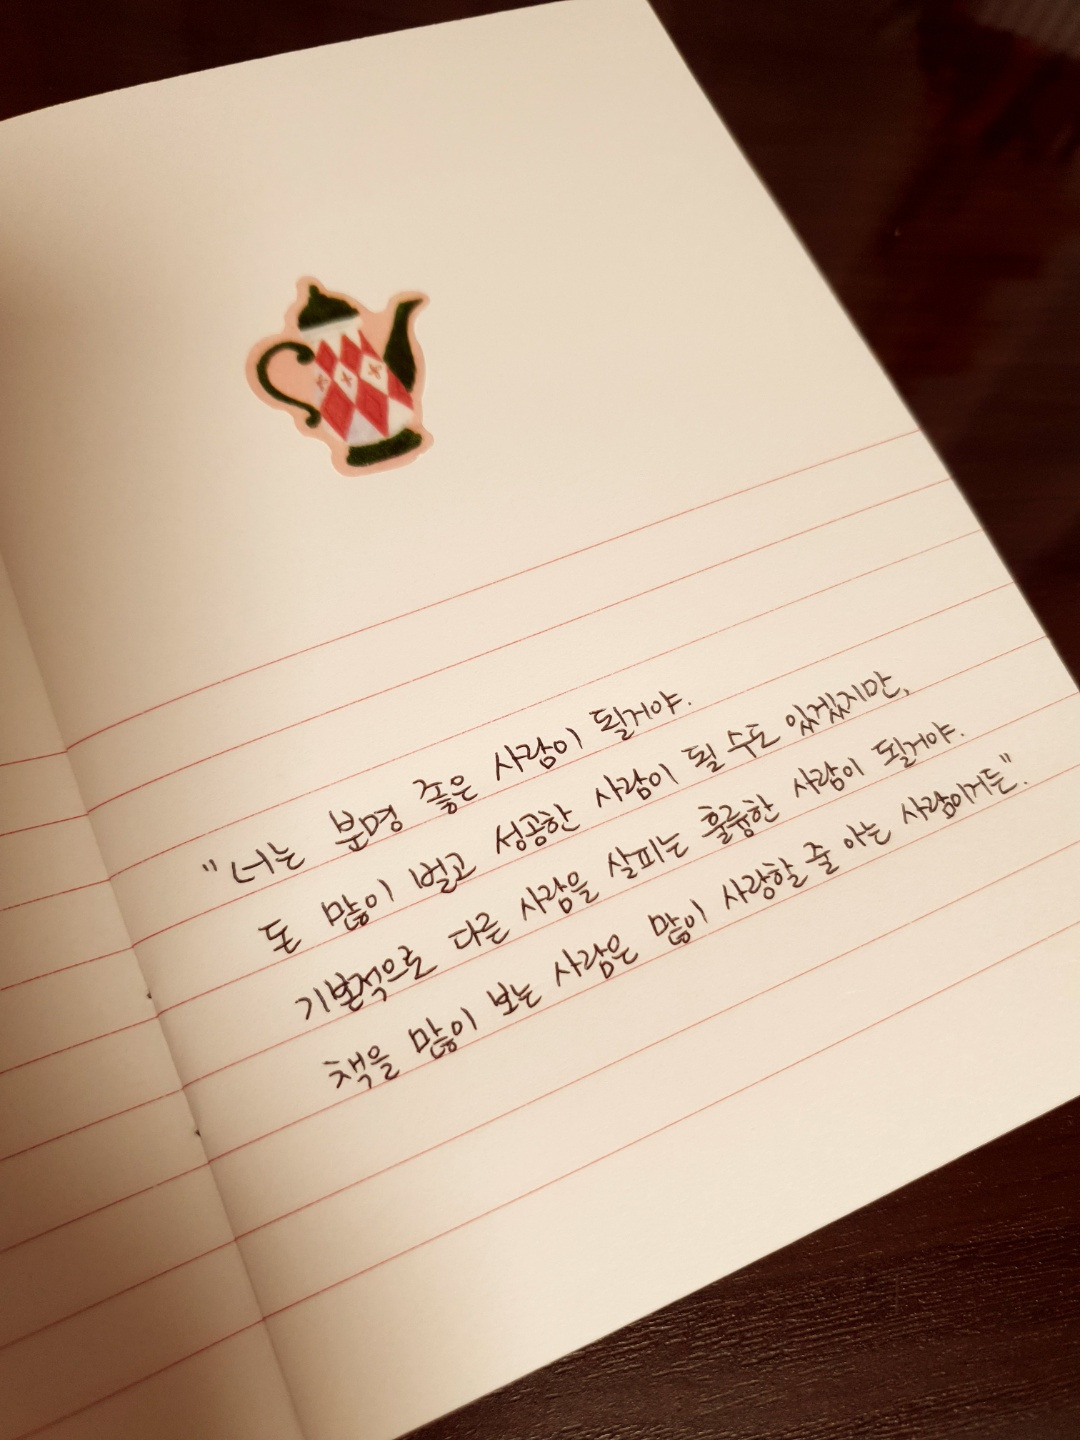 "너는 분명 좋은 사람이 될거야.
돈 많이 벌고 성공한 사람이 될 수도 있겠지만,
기본적으로 다른 사람을 살피는 훌륭한 사람이 될거야.
책을 많이 보는 사람은 많이 사랑할 줄 아는 사람이거든".